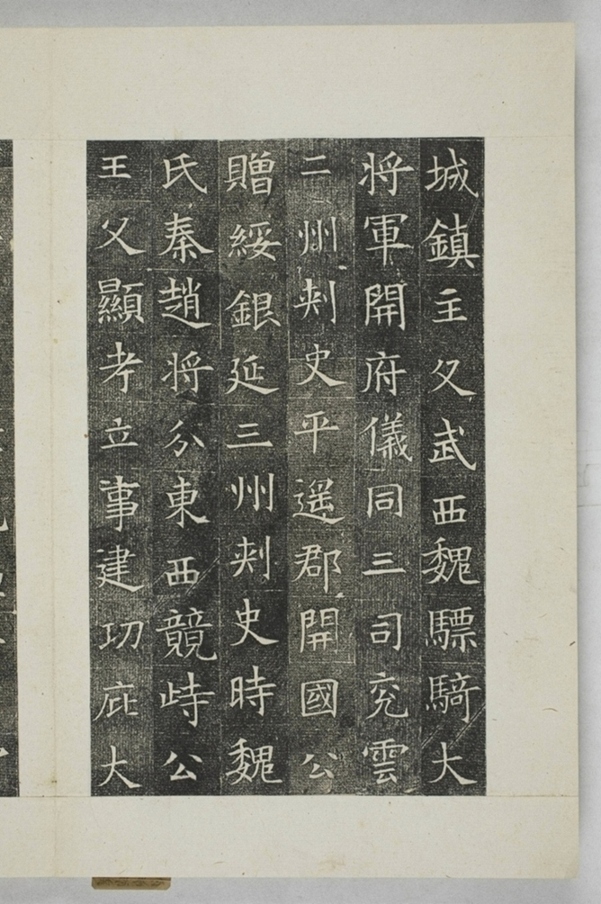 城鎮主父武西魏驃騎大
将軍開府儀同三司兖雲
二州刾史平遥郡開國公
贈綏銀延三州刾史時魏
氏秦趙将分東西競峙公
王父顯考立事建功庇大